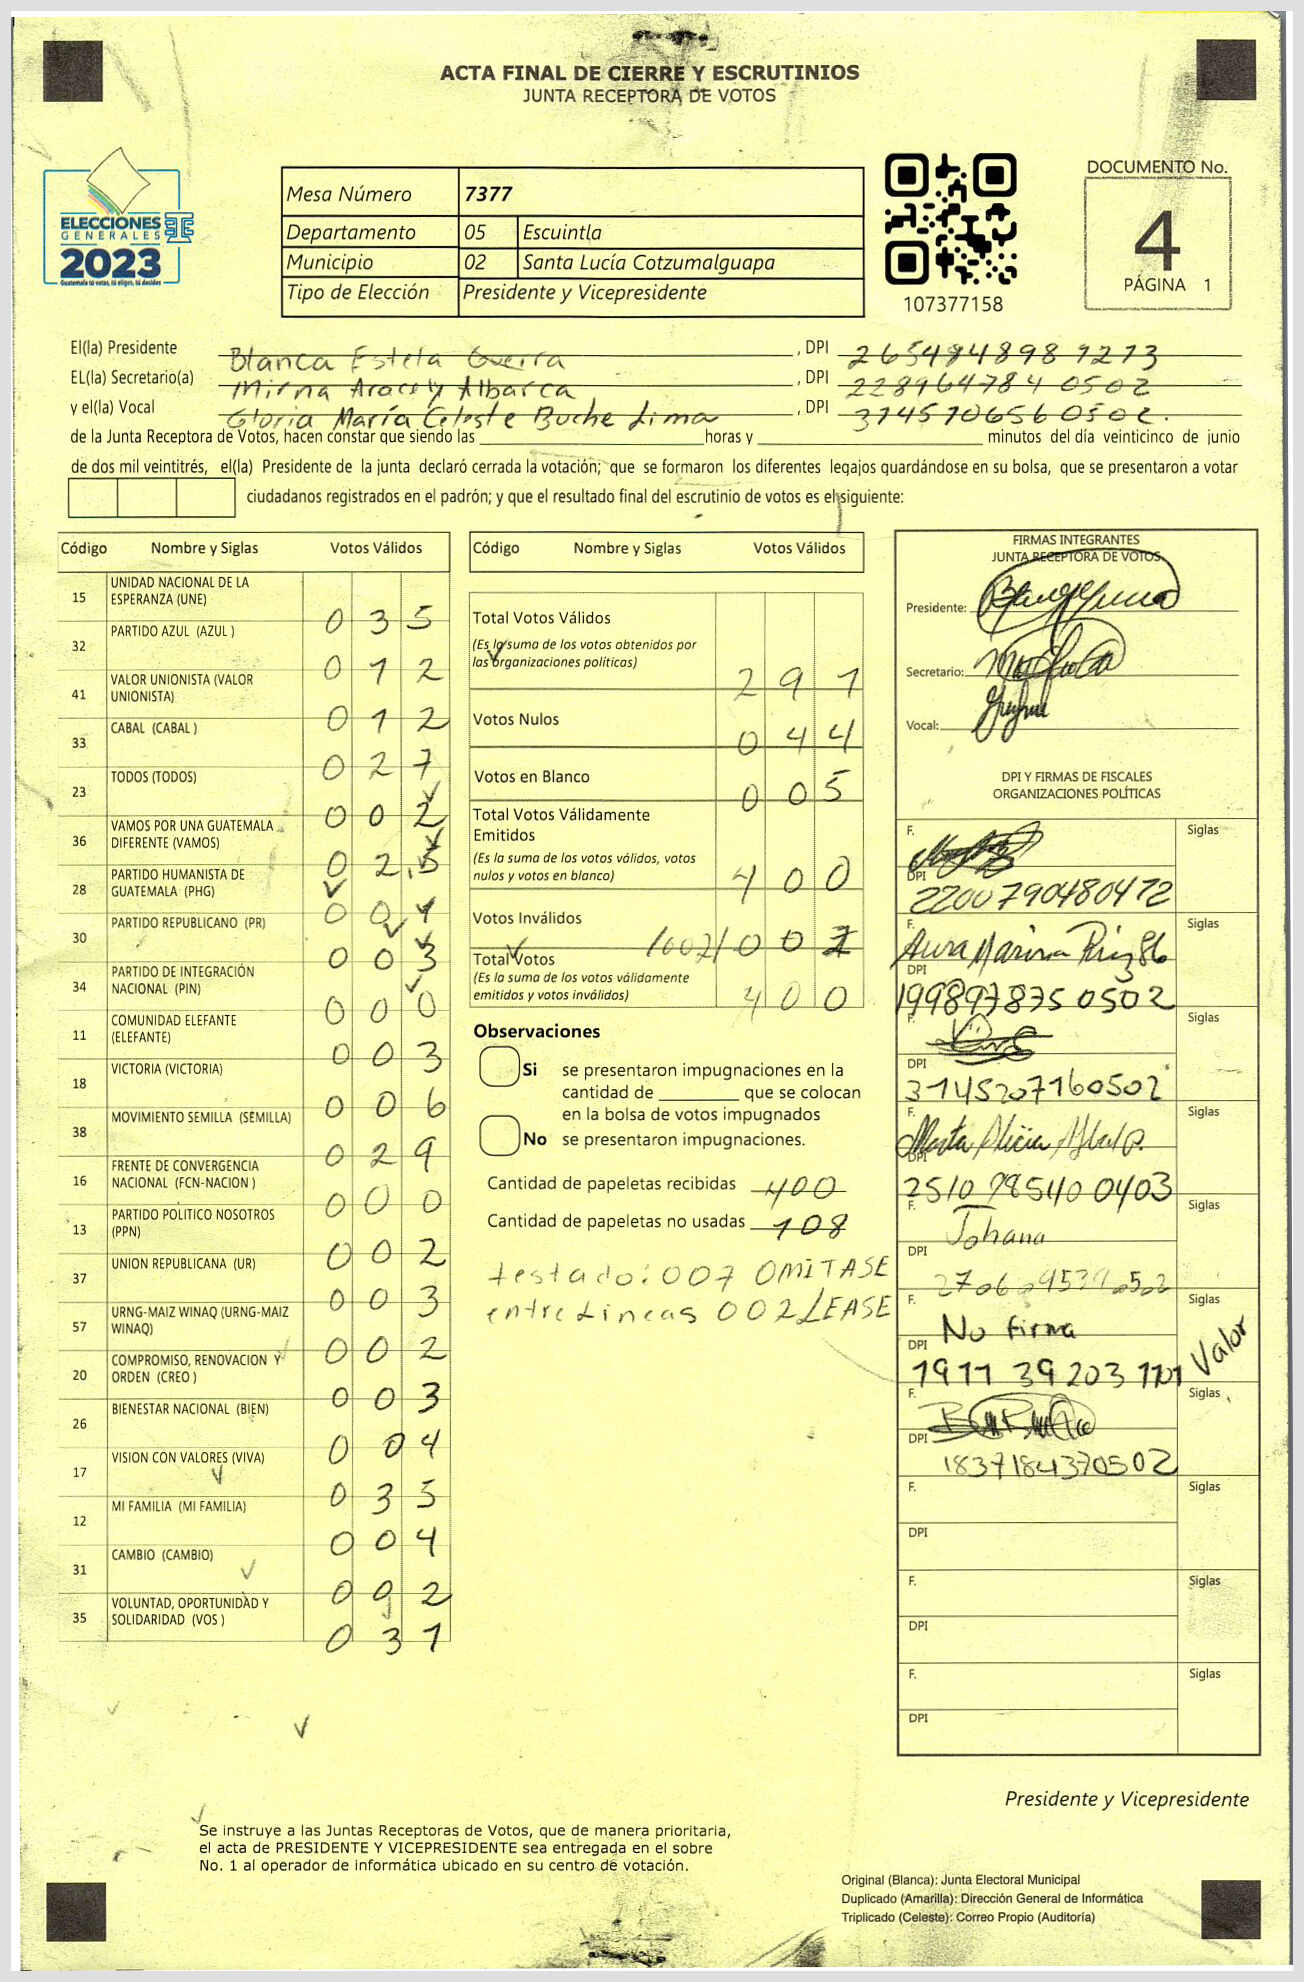 ACTA FINAL DE CIERRE Y ESCRUTINIOS
JUNTA RECEPTORA DE VOTOS
ELECCIONES
GENERALES
2023
Guatemala tú votas, tú eliges, tú decides
Mesa Número 7377
Departamento 05 Escuintla
Municipio 02 Santa Lucía Cotzumalguapa
Tipo de Elección Presidente y Vicepresidente
107377158
DOCUMENTO No.
4
PÁGINA 1
El(la) Presidente Blanca Estela Guerra , DPI
EL(la) Secretario(a) Mirna Aracely Albarca , DPI 2289647840502
y el(la) Vocal Gloria María Celeste Buche Lima , DPI 3145706560502.
de la Junta Receptora de Votos, hacen constar que siendo las horas y minutos del día veinticinco de junio
de dos mil veintitrés, el(la) Presidente de la junta declaró cerrada la votación; que se formaron los diferentes legajos guardándose en su bolsa, que se presentaron a votar
ciudadanos registrados en el padrón; y que el resultado final del escrutinio de votos es el siguiente:
Código Nombre y Siglas Votos Válidos
15 UNIDAD NACIONAL DE LA ESPERANZA (UNE) 035
32 PARTIDO AZUL (AZUL ) 012
41 VALOR UNIONISTA (VALOR UNIONISTA) 012
33 CABAL (CABAL ) 027
23 TODOS (TODOS) 002
36 VAMOS POR UNA GUATEMALA DIFERENTE (VAMOS) 025
28 PARTIDO HUMANISTA DE GUATEMALA (PHG) 001
30 PARTIDO REPUBLICANO (PR) 003
34 PARTIDO DE INTEGRACIÓN NACIONAL (PIN) 000
11 COMUNIDAD ELEFANTE (ELEFANTE) 003
18 VICTORIA (VICTORIA) 006
38 MOVIMIENTO SEMILLA (SEMILLA) 029
16 FRENTE DE CONVERGENCIA NACIONAL (FCN-NACION ) 000
13 PARTIDO POLITICO NOSOTROS (PPN) 002
37 UNION REPUBLICANA (UR) 003
57 URNG-MAIZ WINAQ (URNG-MAIZ WINAQ) 002
20 COMPROMISO, RENOVACION Y ORDEN (CREO ) 003
26 BIENESTAR NACIONAL (BIEN) 004
17 VISION CON VALORES (VIVA) 035
12 MI FAMILIA (MI FAMILIA) 004
31 CAMBIO (CAMBIO) 002
35 VOLUNTAD, OPORTUNIDAD Y SOLIDARIDAD (VOS ) 031
Código Nombre y Siglas Votos Válidos
Total Votos Válidos
(Es la suma de los votos obtenidos por
las organizaciones políticas) 291
Votos Nulos 044
Votos en Blanco 005
Total Votos Válidamente
Emitidos
(Es la suma de los votos válidos, votos
nulos y votos en blanco) 400
Votos Inválidos /002/ 00
Total Votos
(Es la suma de los votos válidamente
emitidos y votos inválidos) 400
Observaciones
Si se presentaron impugnaciones en la
cantidad de que se colocan
en la bolsa de votos impugnados
No se presentaron impugnaciones.
Cantidad de papeletas recibidas 400
Cantidad de papeletas no usadas 108
testado: 007 OMITASE
entreLineas 002 LEASE
FIRMAS INTEGRANTES
JUNTA RECEPTORA DE VOTOS
Presidente:
Secretario:
Vocal:
DPI Y FIRMAS DE FISCALES
ORGANIZACIONES POLÍTICAS
F. Siglas
DPI 2200790480472
F. Aura Marina Siglas
DPI 1998978750502
F. Siglas
DPI 3145207160502
F. Marta Alicia Siglas
DPI 2510785400403
F. Johana Siglas
DPI
F. No firma Siglas
DPI 1911 39 203 1101 Valor
F. Siglas
DPI 1837184370502
F. Siglas
DPI
F. Siglas
DPI
F. Siglas
DPI
Presidente y Vicepresidente
Se instruye a las Juntas Receptoras de Votos, que de manera prioritaria,
el acta de PRESIDENTE Y VICEPRESIDENTE sea entregada en el sobre
No. 1 al operador de informática ubicado en su centro de votación.
Original (Blanca): Junta Electoral Municipal
Duplicado (Amarilla): Dirección General de Informática
Triplicado (Celeste): Correo Propio (Auditoría)